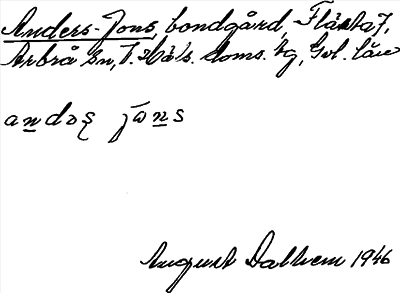 Anders-Jons, bondgård, Flästa 7,
Arbrå sn, V. Häls. doms. tg, Gvl. län
andəș jōns
August Dalhem 1946